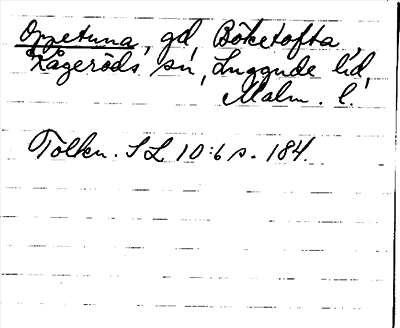 Oppetuna, gd, Böketofta,
Kågeröds sn, Luggude hd,
Malm. l.
Tolkn. SL 10:6 s. 184.